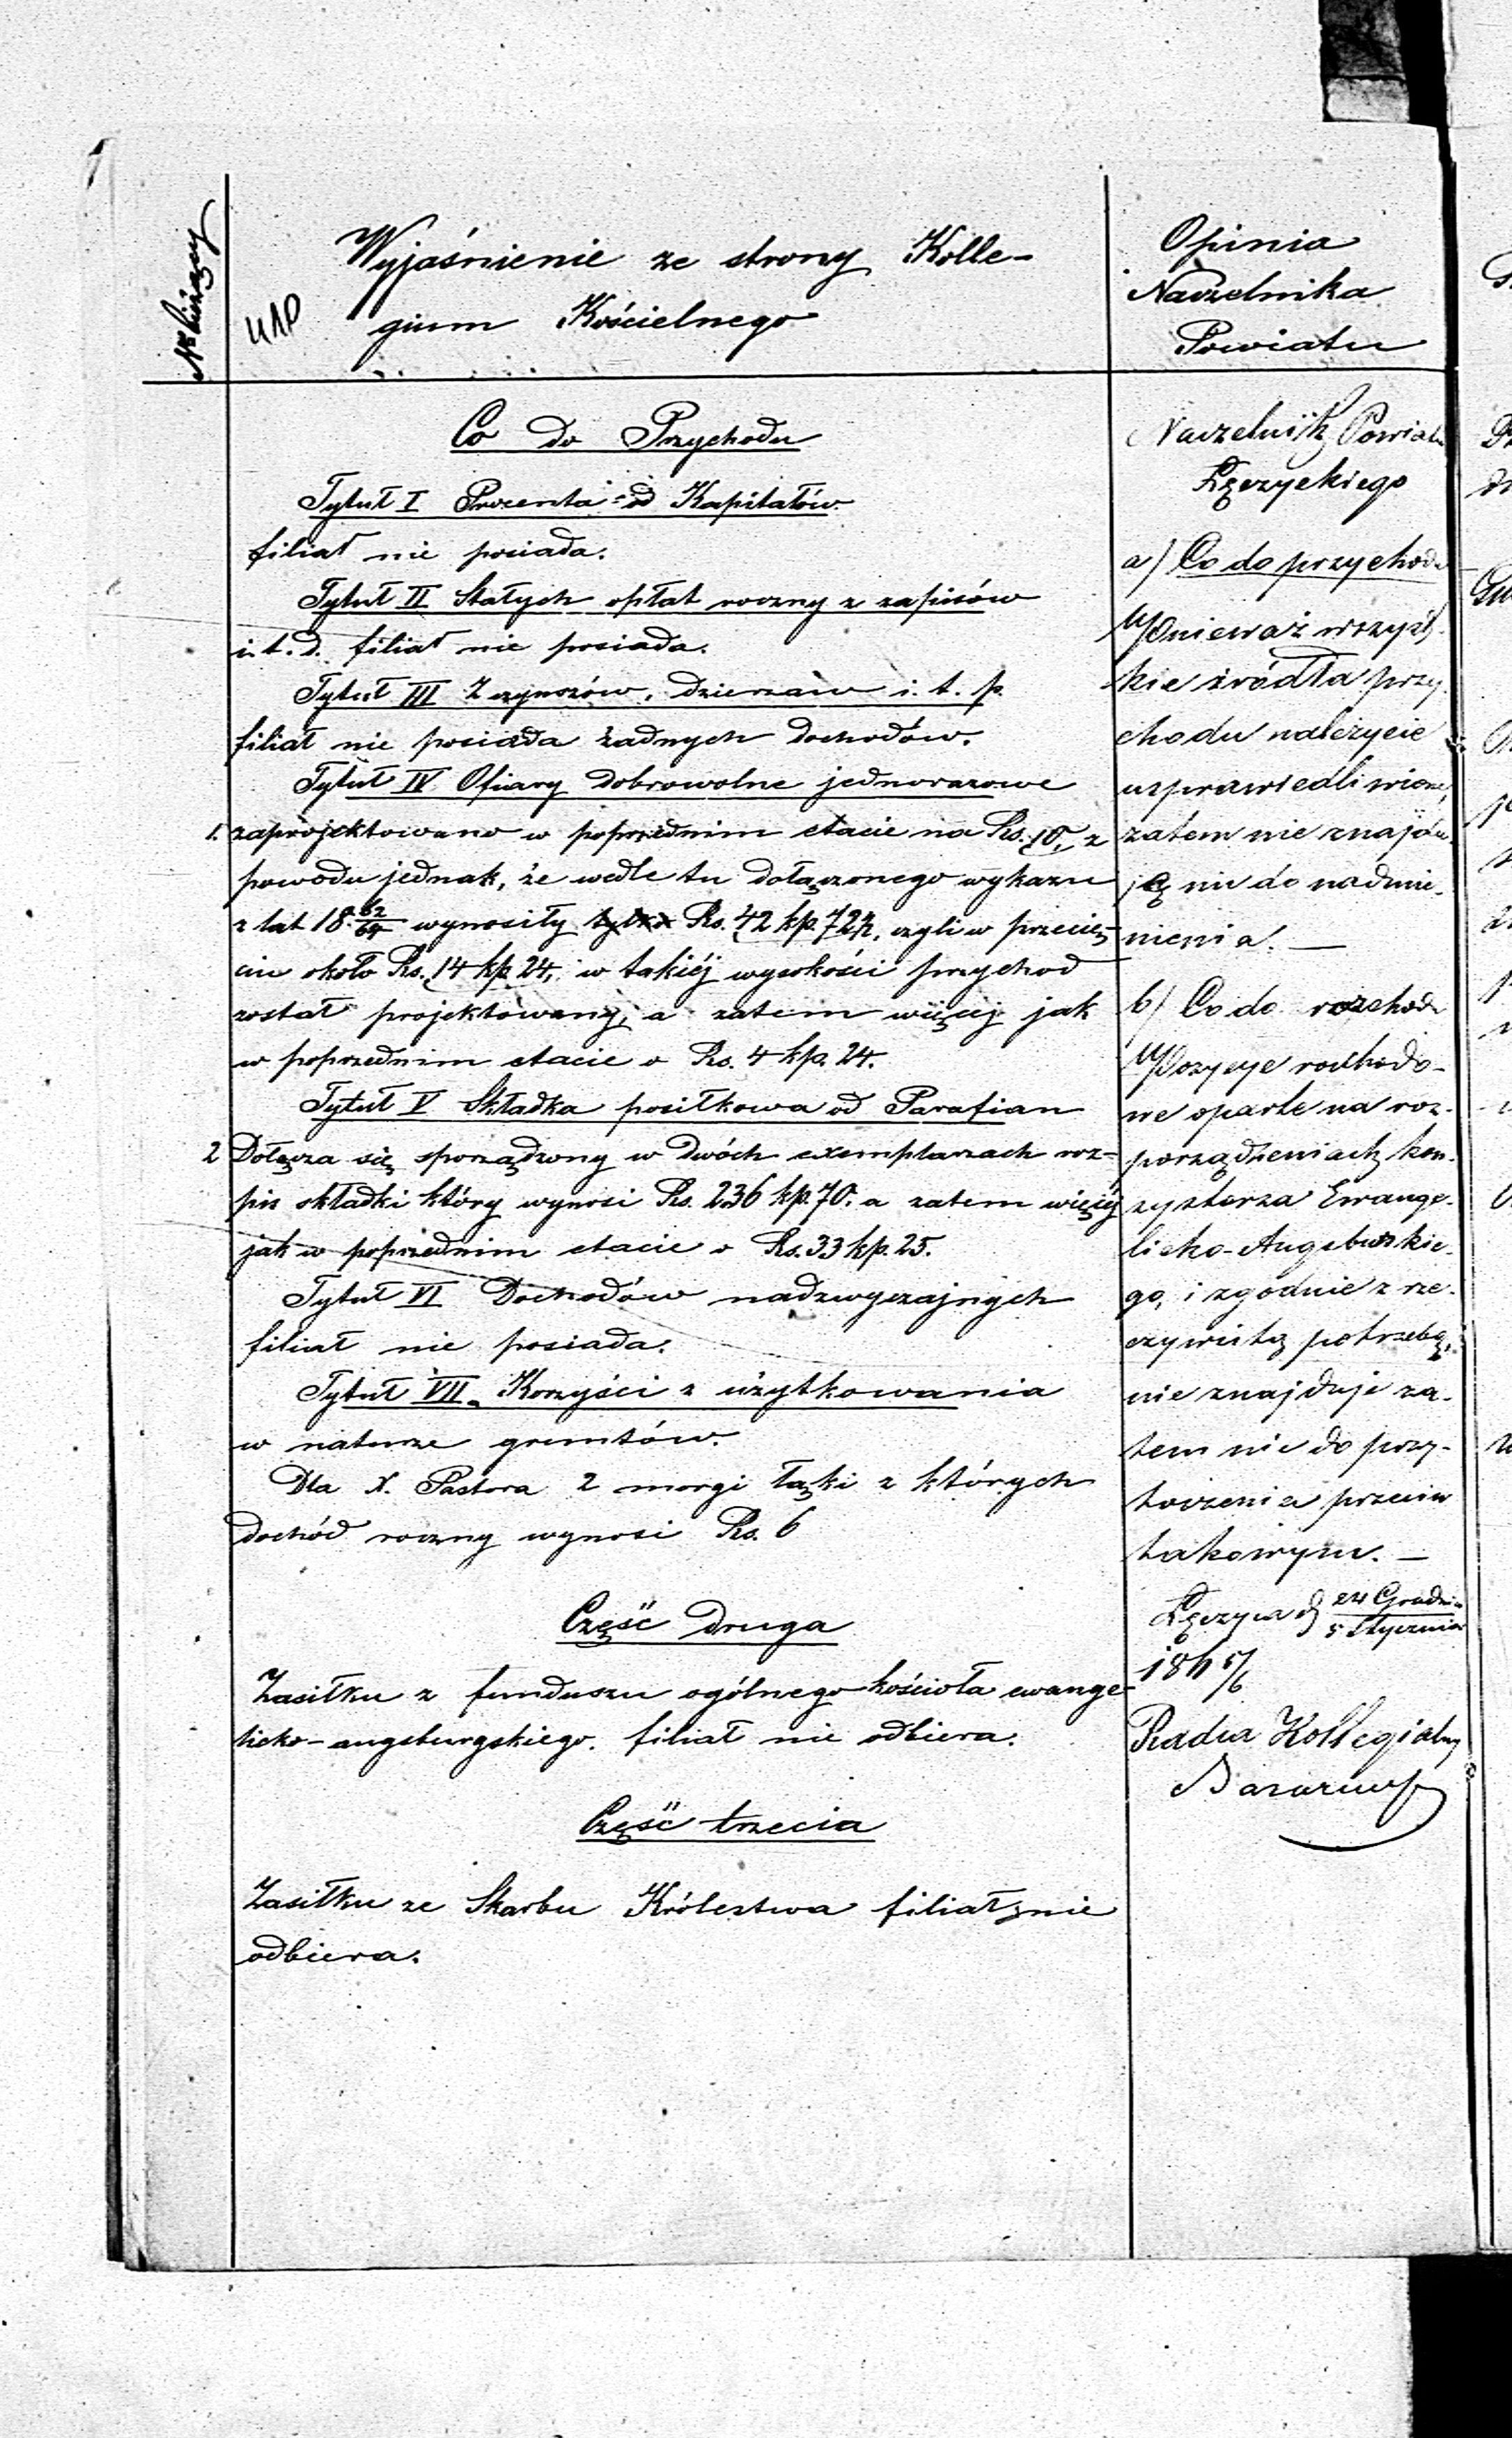 No bieżący
Wyjaśnienie ze strony Kolle-
gium Kościelnego
Co do Przychodu
Tytuł I Procenta od Kapitałów
filiał nie posiada.
Tytuł II Stałych opłat roczny z zapisów
i. t. d. filiał nie posiada.
Tytuł III Z czynszów, dzierzaw i. t. p.
filiał nie posiada żadnych dochodów.
Tytuł IV Ofiary dobrowolne jednorazowe
1. zaprojektowano w poprzednim etacie na Rs. 10, z
powodu jednak, że wedle tu dołączonego wykazu
z lat 18 62/64 wynosiły tylko Rs. 42 kp. 72½, czyli w przecię-
ciu około Rs. 14 kp 24, w takiéj wysokości przychod
został projektowany, a zatem więcej jak
w poprzednim etacie o Rs. 4 kp. 24.
Tytuł V Składka posiłkowa od Parafian
2 Dołącza się sporządzony w dwóch exemplarzach roz-
pis składki który wynosi Rs. 236 kp. 70. a zatem więcéj
jak w poprzednim etacie o Rs. 33 kp. 25.
Tytuł VI Dochodów nadzwyczajnych
filiał nie posiada.
Tytuł VII. Korzyści z użytkowania
w naturze gruntów.
Dla X. Pastora 2 morgi łąki z których
dochód roczny wynosi Rs. 6
Część druga
Zasiłku z funduszu ogólnego kościoła ewange-
licko-augsburgskiego. filiał nie odbiera.
Część trzecia
Zasiłku ze Skarbu Królestwa filiał nie
odbiera.
Opinia
Naczelnika
Powiatu
Naczelnik Powiatu
Łęczyckiego
a) Co do przychodu
Ponieważ wszyst-
kie źródła przy-
chodu należycie
usprawiedliwione,
zatem nie znajdu-
ję nic do nadmie-
nienia. —
b) Co do rozchodu
Pozycye rozchodo-
we oparte na roz-
porządzeniach kon-
systorza Ewange-
licko-Augsburskie-
go, i zgodnie z rze-
czywistą potrzebą,
nie znajduje za-
tem nic do przy-
toczenia przeciw
takowym. —
Łęczyca d 24 Grudnia / 5 Stycznia
186 5/6
Radca Kollegialny